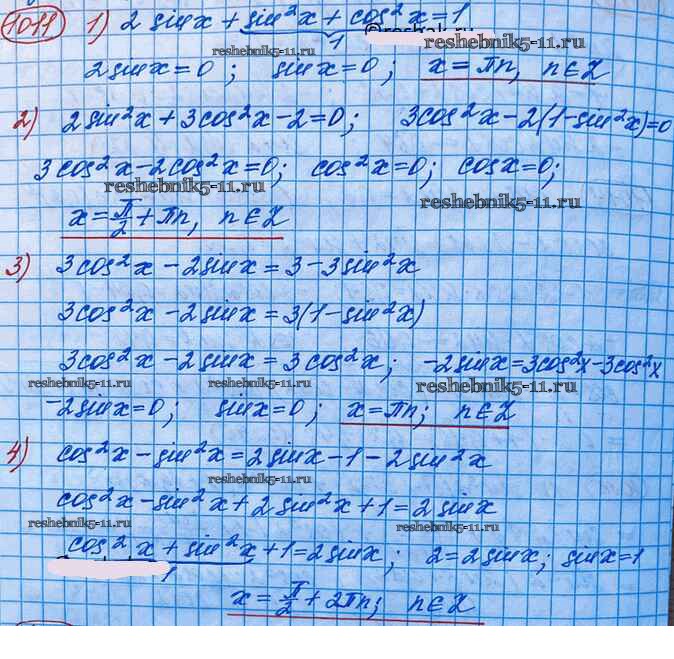 1011 1) 2 sin x + sin²x + cos²x = 1
1
©reshak.ru
reshebnik5-11.ru
reshebnik5-11.ru
2 sin x = 0 ; sin x = 0 ; x = πn, n ∈ Z
2) 2 sin²x + 3 cos²x - 2 = 0 ; 3 cos²x - 2(1 - sin²x) = 0
3 cos²x - 2 cos²x = 0 ; cos²x = 0 ; cos x = 0 ;
reshebnik5-11.ru
reshebnik5-11.ru
x = π/2 + πn, n ∈ Z
3) 3 cos²x - 2 sin x = 3 - 3 sin²x
3 cos²x - 2 sin x = 3(1 - sin²x)
3 cos²x - 2 sin x = 3 cos²x ; -2 sin x = 3 cos²x - 3 cos²x
reshebnik5-11.ru reshebnik5-11.ru reshebnik5-11.ru
-2 sin x = 0 ; sin x = 0 ; x = πn ; n ∈ Z
4) cos²x - sin²x = 2 sin x - 1 - 2 sin²x
cos²x - sin²x + 2 sin²x + 1 = 2 sin x
reshebnik5-11.ru reshebnik5-11.ru
cos²x + sin²x + 1 = 2 sin x ; 2 = 2 sin x ; sin x = 1
1
x = π/2 + 2πn ; n ∈ Z